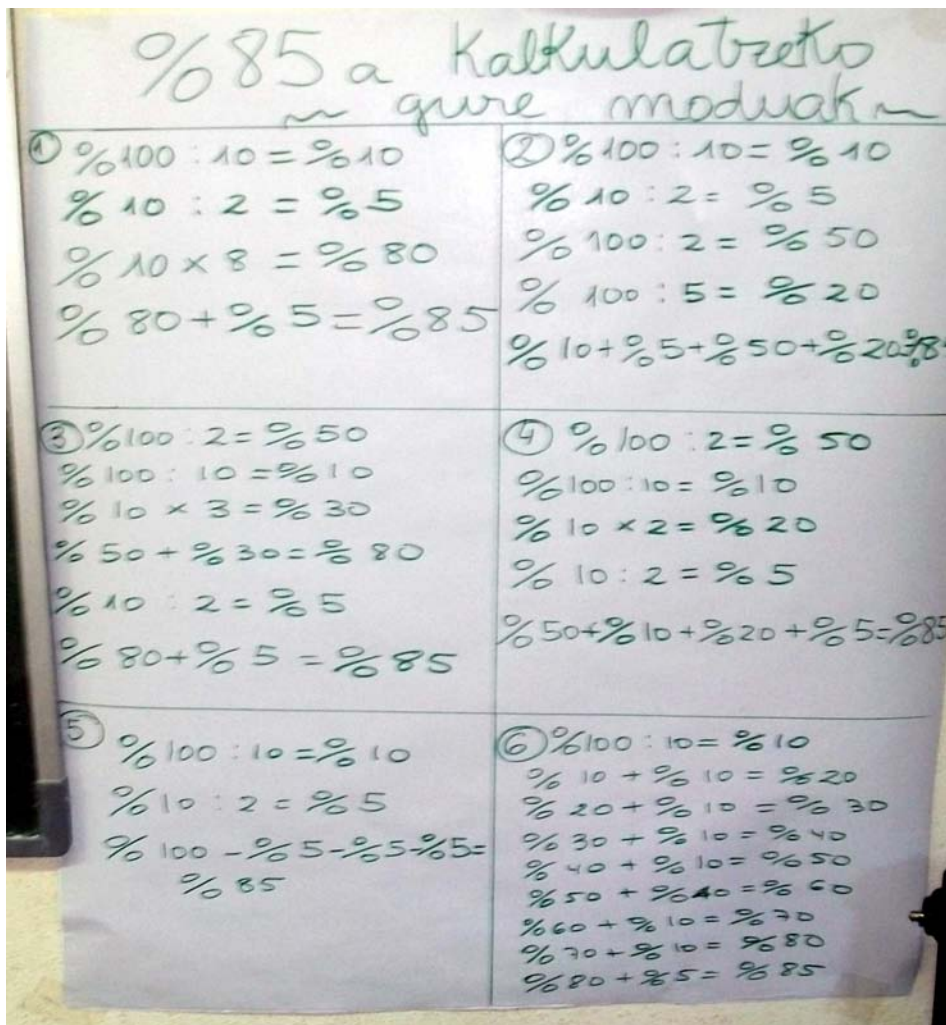 %85 a Kalkulatzeko
~ gure moduak ~
① %100 : 10 = %10
%10 : 2 = %5
%10 × 8 = %80
%80 + %5 = %85
② %100 : 10 = %10
%10 : 2 = %5
%100 : 2 = %50
%100 : 5 = %20
%10 + %5 + %50 + %20 = %8
③ %100 : 2 = %50
%100 : 10 = %10
%10 × 3 = %30
%50 + %30 = %80
%10 : 2 = %5
%80 + %5 = %85
④ %100 : 2 = %50
%100 : 10 = %10
%10 × 2 = %20
%10 : 2 = %5
%50 + %10 + %20 + %5 = %85
⑤
%100 : 10 = %10
%10 : 2 = %5
%100 - %5 - %5 - %5 =
%85
⑥ %100 : 10 = %10
%10 + %10 = %20
%20 + %10 = %30
%30 + %10 = %40
%40 + %10 = %50
%50 + %10 = %60
%60 + %10 = %70
%70 + %10 = %80
%80 + %5 = %85